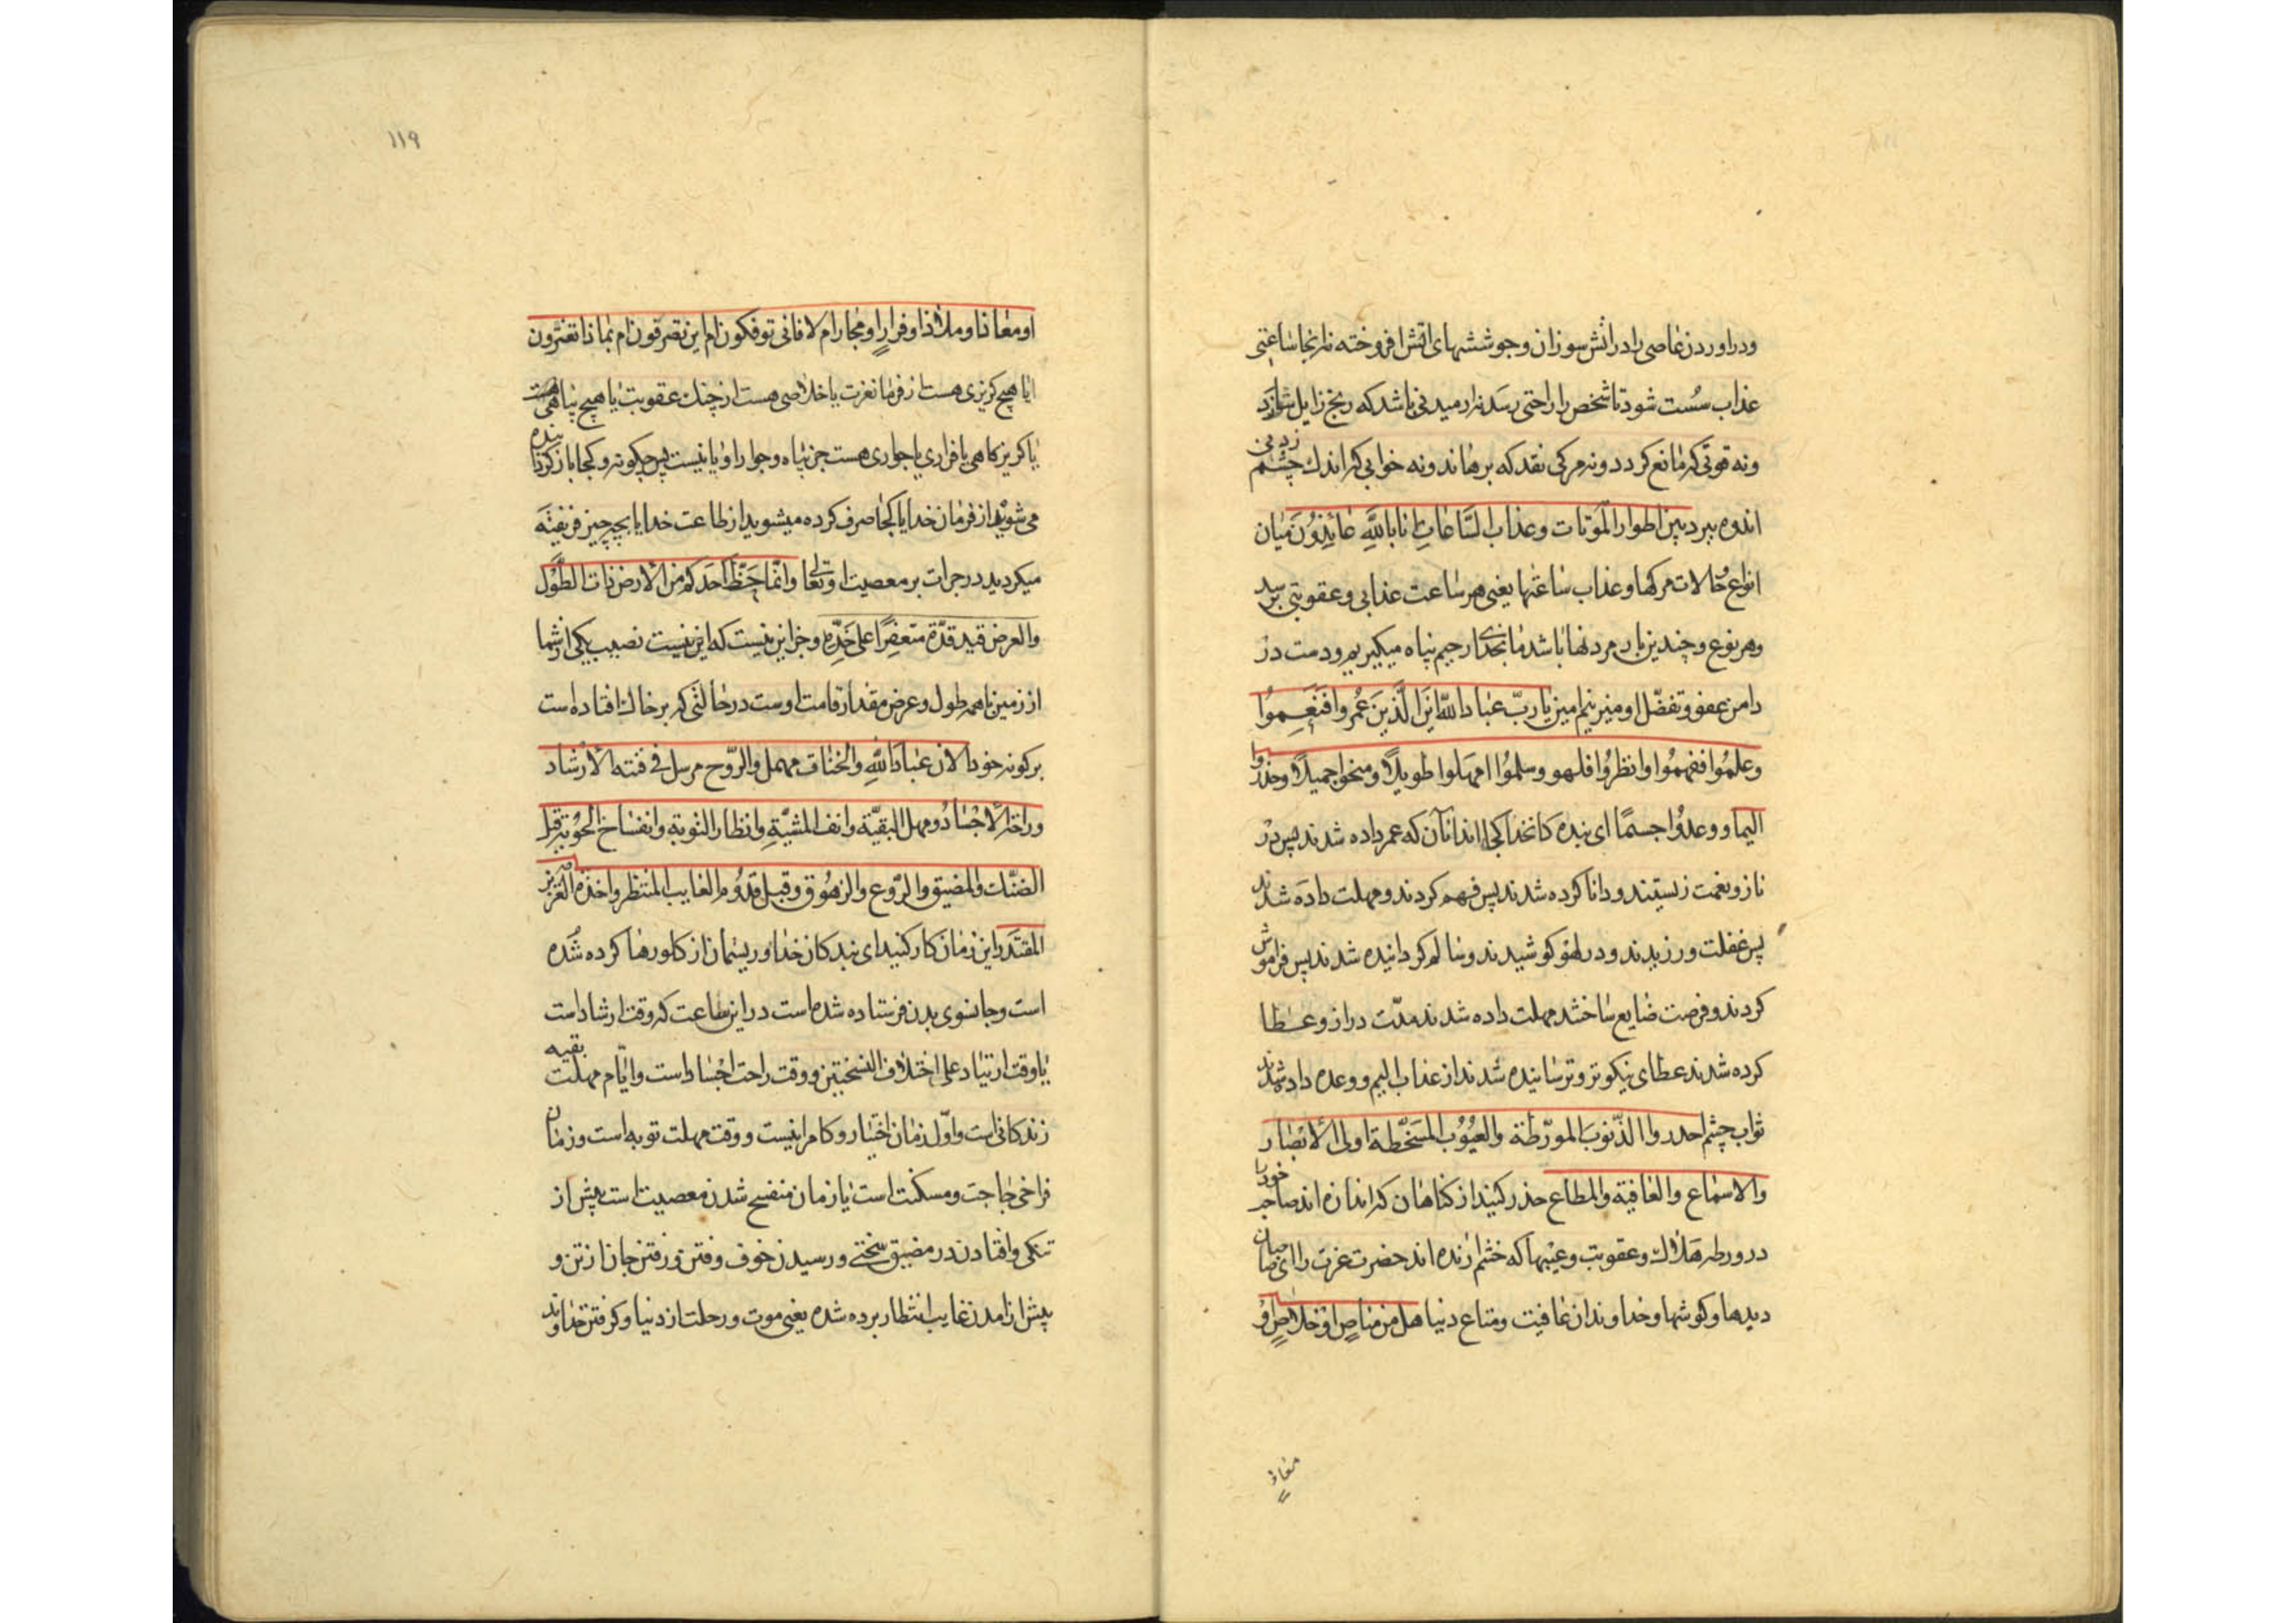 ودراوردن عاصی را در اتش سوزان وجوششهای اتش افروخته نار نجا ساعتی
عذاب سُست شود تا شخص را راحتی رسد نه ارمیدنی باشد که رنج زایل سازد
ونه قوتی که مانع کردد ونه مرکی نقد که برهاند ونه خوابی که اندک چشم زدنی
اندوه ببرد بین اطوار الموتات وعذاب السّاعات انا بالله عائذون میان
انواع حالات مرکها وعذاب ساعتها یعنی هر ساعت عذابی وعقوبتی برسد
وهر نوع وچندین بار مردنها باشد ما بخدای رحیم پناه میکیریم ودست در
دامن عفو وتفضّل او میزنیم امین یا ربّ عباد الله این الّذین عُمروا فنَعِموا
وعلموا ففهموا وانظروا فلهو وسلموا امهلوا طویلًا ومنحوا جمیلًا وحذروا
الیما ووعدوا جسمًا ای بنده کان خدا کجا اند انان که عمر داده شدند پس در
ناز ونعمت زیستند ودانا کرده شدند پس فهم کردند ومهلت داده شدند
پس غفلت ورزیدند ودر لهو کوشیدند وسالم کردانیده شدند پس فراموش
کردند وفرصت ضایع ساختند مهلت داده شدند مدّت دراز وعطا
کرده شدند عطای نیکوتر وترسانیده شدند از عذاب الیم ووعده داده شدند
ثواب چشم احدروا الذّنوب المورّطة والعیُوب المسخّطة اولی الابصار
والاسماع والعافیة والمطاع حذر کنید از کناهان که اندازه اند صاحب خود را
در ورطه هلاک وعقوبت وعیبها که خشم ارنده اند حضرت عزت را ای صاحبان
دیدها وکوشها وخداوندان عافیت ومتاع دنیا هل من مناص او خلاص او
معاذ
۱۱۹
او معاذا وملاذا وفرار او مجار ام لا فانی توفکون ام این تصرفون ام بماذا تغترون
ایا هیچ کریزی هست از فرمان عزت یا خلاصی هست از چنک عقوبت یا هیچ پناهی هست
یا کریزکاهی یا فراری یا جواری هست جز پناه وجوار او یا نیست پس چکونه وکجا باز کردنده
می شوید از فرمان خدا یا کجا صرف کرده میشوید از طاعت خدا یا بچه چیز فریفته
میکردید در جرات بر معصیت او تعالی وانّما حَظّ احدکم من الارض ذات الطّول
والعرض قید قدّه متعفِرًا علی خدّه وجز این نیست که این نیست نصیب یکی از شما
از زمین با همه طول وعرض مقدار قامت اوست در حالتی که بر خاک افتاده است
بر کونه خود الان عباد الله والخناق مهمل والرّوح مرسل فی فتنه الارشاد
وراحة الاجساد ومهل البقیّة وانف المشیّة وانظار التوبة وانفساخ الحوبة قبل
الضنّک والمضیق والرّوع والزهوق وقبل قدُوم الغایب المنتظر واخذه العزیز
المقتدر این زمان کار کنید ای بندکان خدا وریسمان از کلو رها کرده شده
است وجان بسوی بدن فرستاده شده است در این ساعت که وقت ارشاد است
یا وقت ارتیاد علی اختلاف النسختین ووقت راحت اجساد است وایّام مهلت بقیه
زندکانی است واوّل زمان اختیار وکامرانیست ووقت مهلت توبه است وزمان
فراخی حاجت ومسکنت است یا زمان منفسح شدن معصیت است پیش از
تنکی وافتادن در مضیق سختی ورسیدن خوف وفتن ورفتن جان از تن و
پیش از امدن غایب انتظار برده شده یعنی موت ورحلت از دنیا وکرفتن خداوند